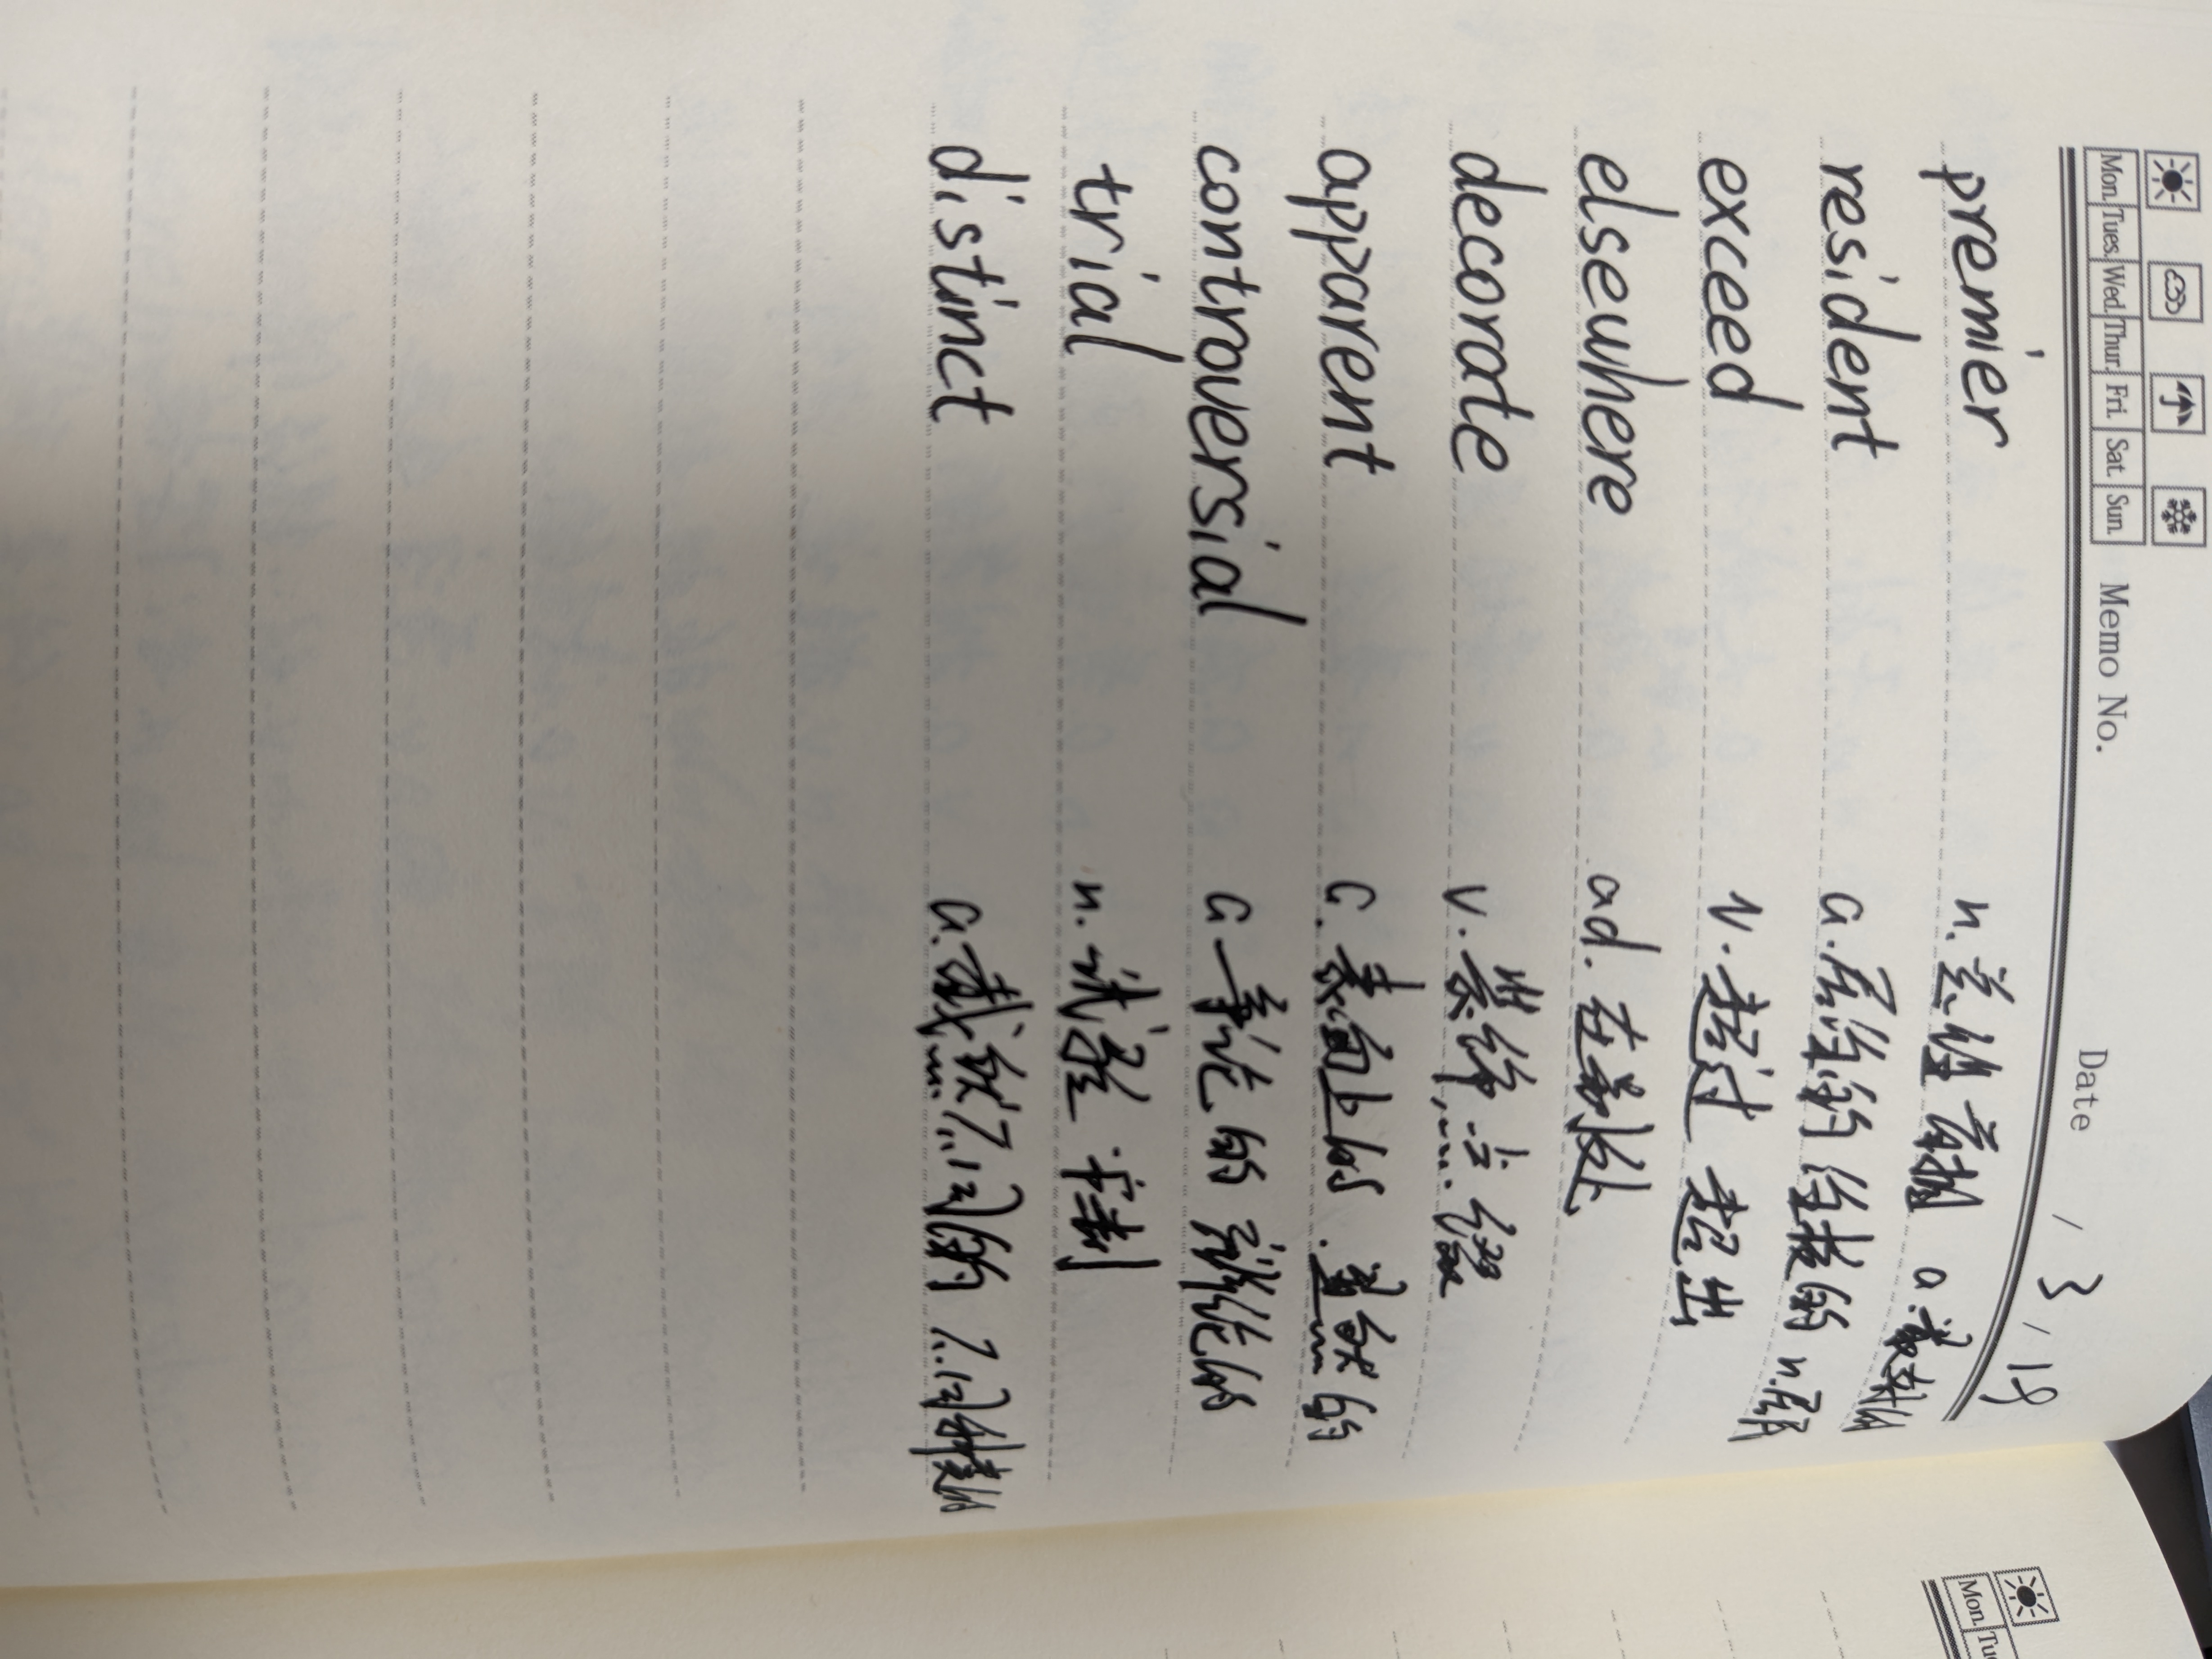 Mon. Tues. Wed. Thur. Fri. Sat. Sun. Memo No. Date / 3 / 19
premier n. 总理 首相 a. 最好的
resident a. 居住的 住校的 n. 居民
exceed v. 超过 超出
elsewhere ad. 在别处
decorate v. 装饰
apparent a. 表面上的 显然的
controversial a 争论的 
trial n. 试验 审判
distinct a. 
Mon. Tue